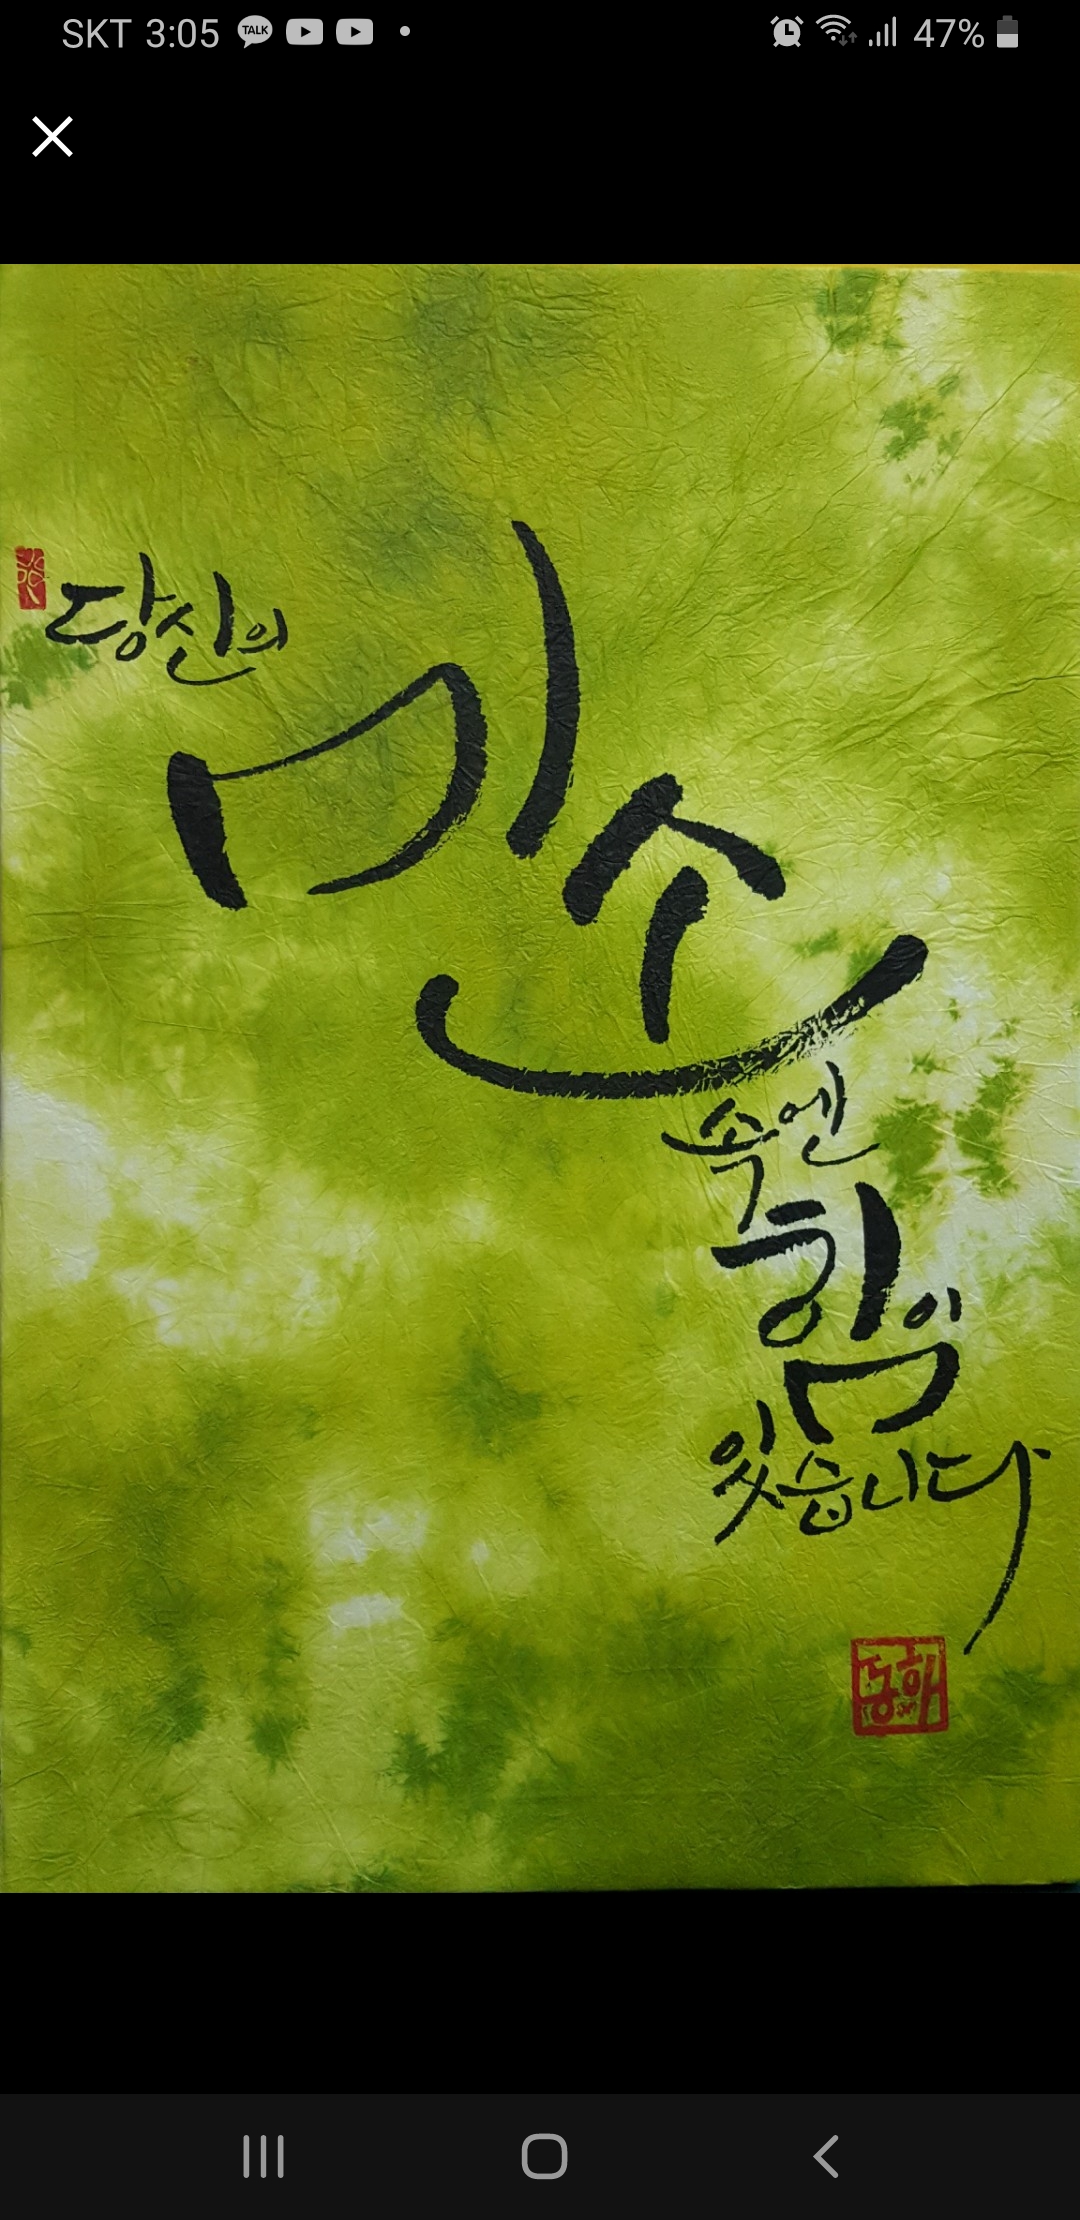 SKT 3:05
TALK
47%
당신의
미소
속엔
힘이
있습니다